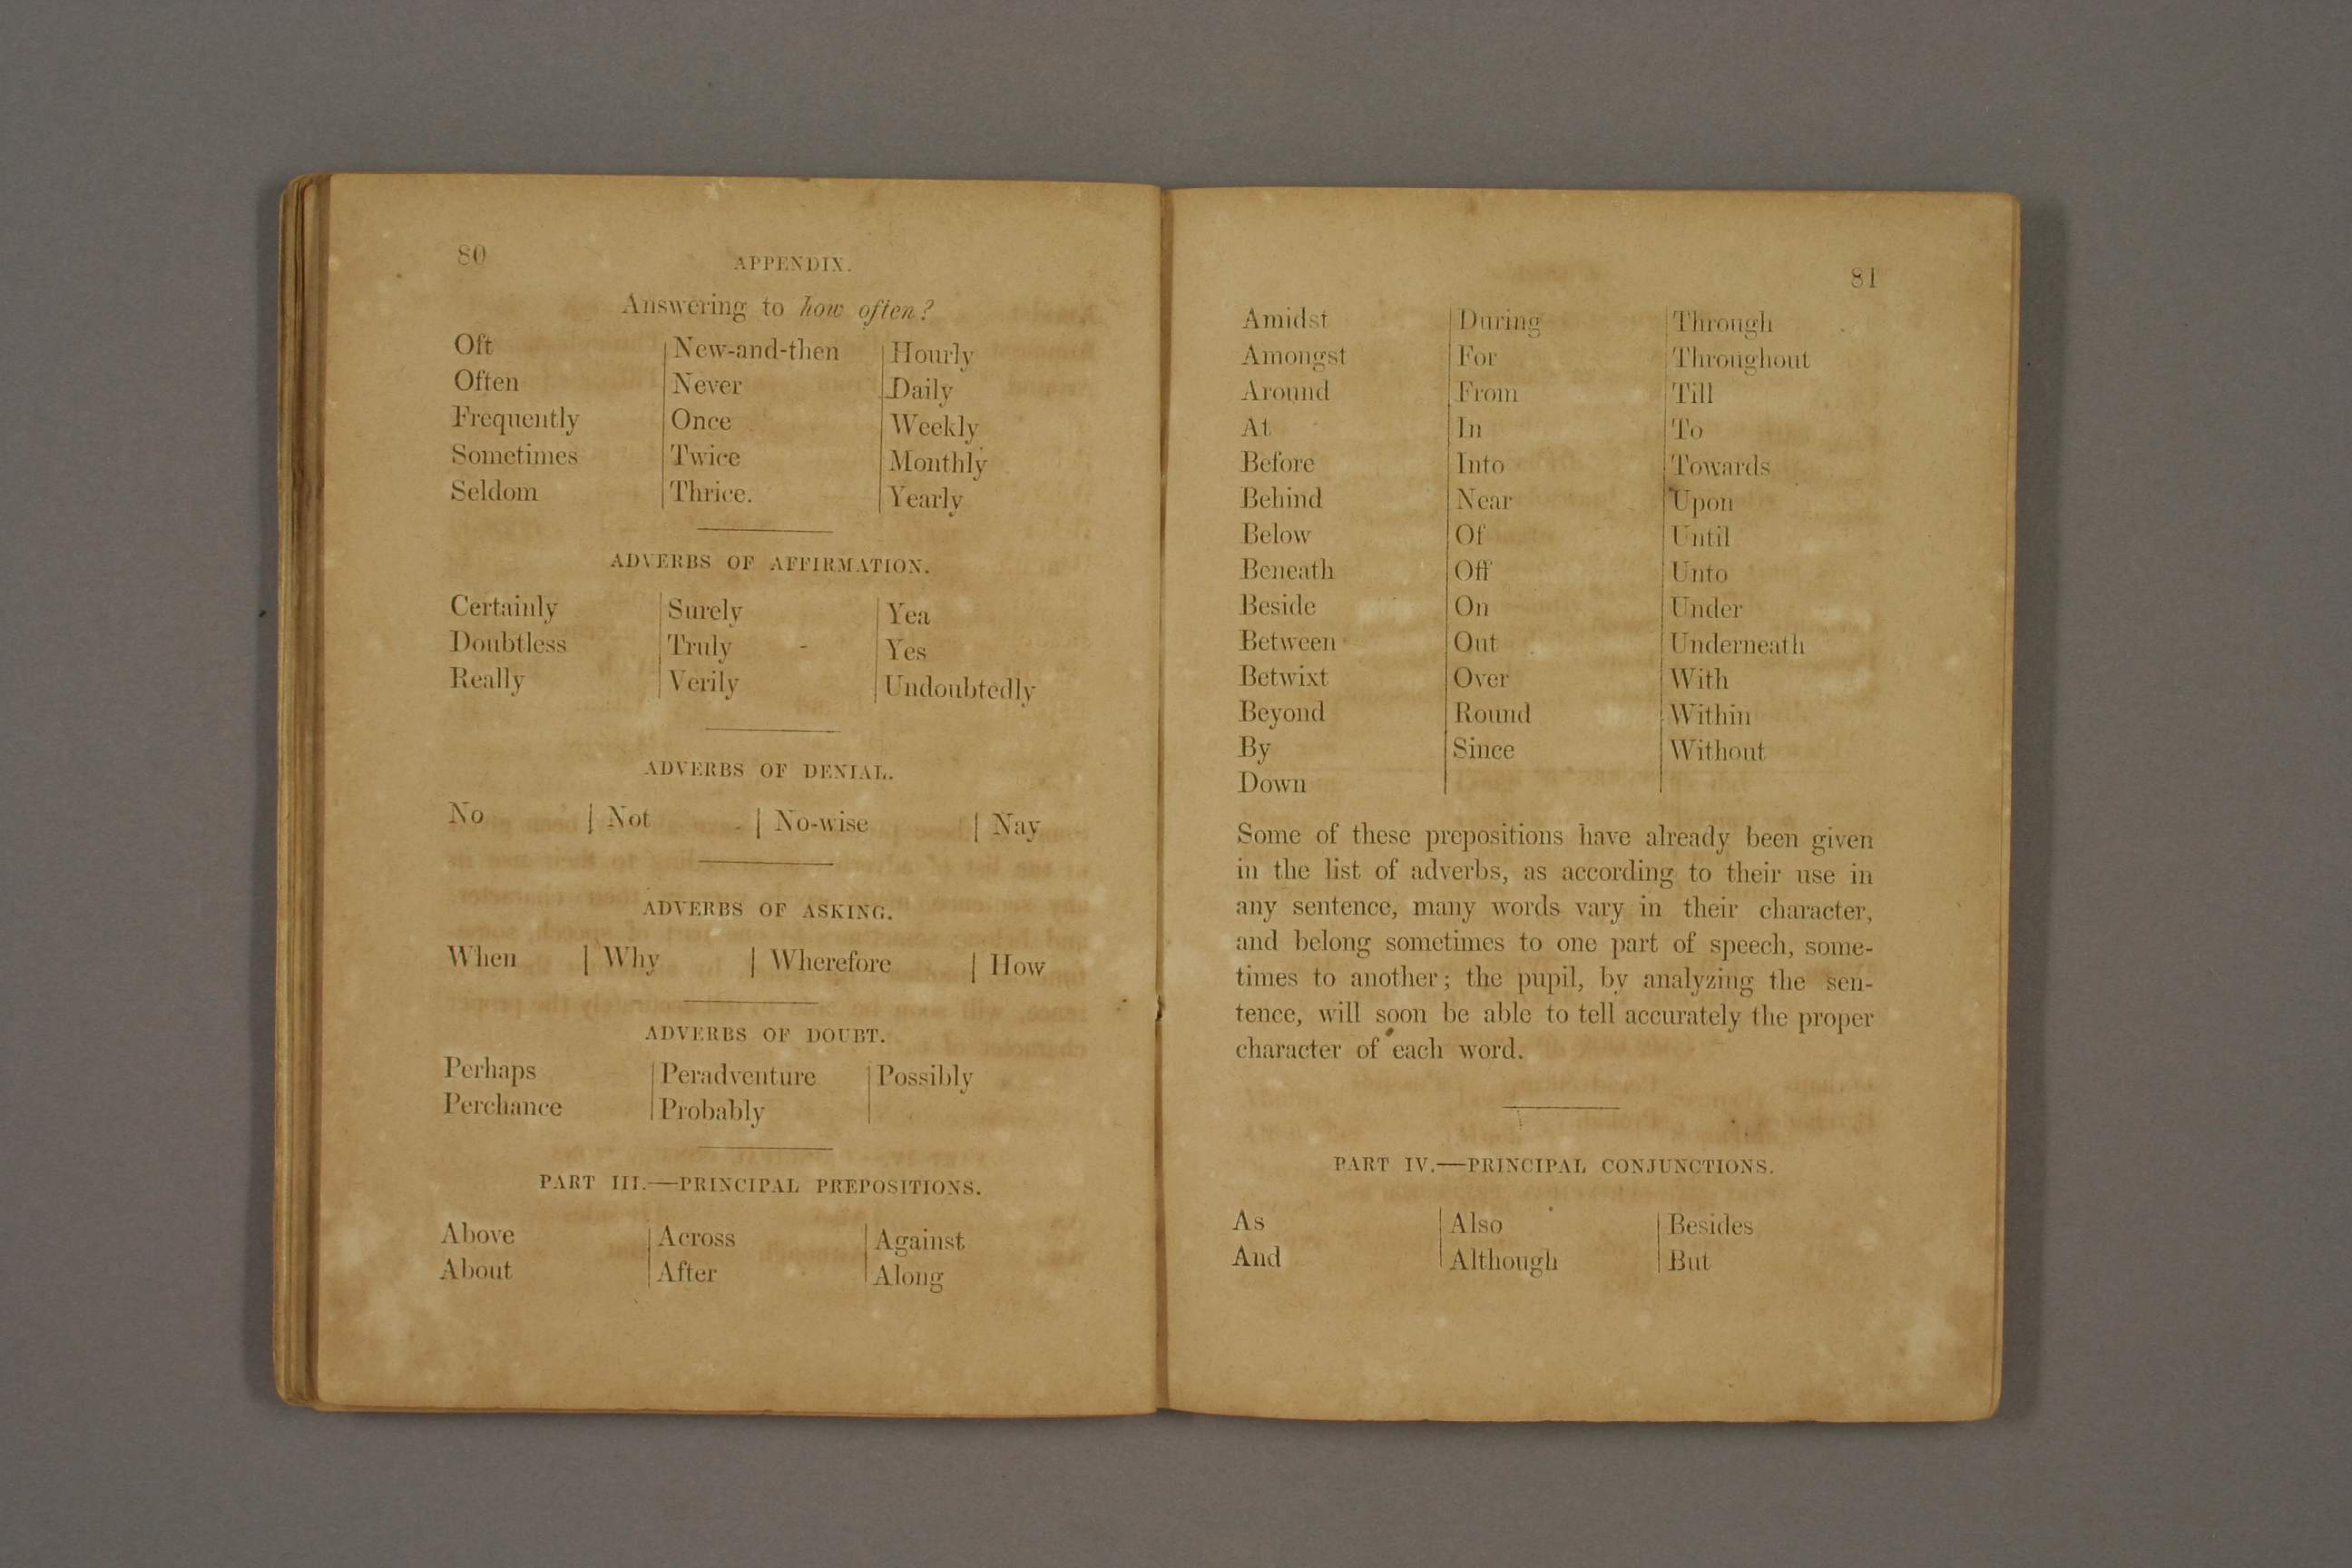 80
APPENDIX.
Answering to how often?
Oft | New-and-then | Hourly
Often | Never | Daily
Frequently | Once | Weekly
Sometimes | Twice | Monthly
Seldom | Thrice. | Yearly
ADVERBS OF AFFIRMATION.
Certainly | Surely | Yea
Doubtless | Truly | Yes
Really | Verily | Undoubtedly
ADVERBS OF DENIAL.
No | Not | No-wise | Nay
ADVERBS OF ASKING.
When | Why | Wherefore | How
ADVERBS OF DOUBT.
Perhaps | Peradventure | Possibly
Perchance | Probably |
PART III.—PRINCIPAL PREPOSITIONS.
Above | Across | Against
About | After | Along
81
Amidst | During | Through
Amongst | For | Throughout
Around | From | Till
At | In | To
Before | Into | Towards
Behind | Near | Upon
Below | Of | Until
Beneath | Off | Unto
Beside | On | Under
Between | Out | Underneath
Betwixt | Over | With
Beyond | Round | Within
By | Since | Without
Down | |
Some of these prepositions have already been given
in the list of adverbs, as according to their use in
any sentence, many words vary in their character,
and belong sometimes to one part of speech, some-
times to another; the pupil, by analyzing the sen-
tence, will soon be able to tell accurately the proper
character of each word.
PART IV.—PRINCIPAL CONJUNCTIONS.
As | Also | Besides
And | Although | But